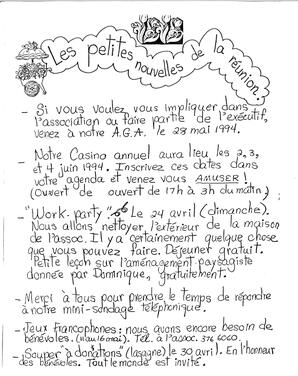 Les petites nouvelles de la réunion.
- Si vous voulez vous impliquer dans
l'association ou faire partie de l'exécutif,
venez à notre A.G.A. le 28 mai 1994.
- Notre Casino annuel aura lieu les 2, 3,
et 4 juin 1994. Inscrivez ces dates dans
votre agenda et venez vous AMUSER!
(Ouvert de ouvert de 17h à 3h du matin)
- "Work-party" Le 24 avril (dimanche).
Nous allons nettoyer l'extérieur de la maison
de l'assoc. Il y a certainement quelque chose
que vous pouvez faire. Déjeuner gratuit.
Petite leçon sur l'aménagement paysagiste
donnée par Dominique, gratuitement.
- Merci à tous pour prendre le temps de répondre
à notre mini-sondage téléphonique.
- Jeux francophones: nous avons encore besoin de
bénévoles. Tél. à l'assoc. 374 6060.
- Souper "à donations" (lasagne) le 30 avril. En l'honneur
des bénévoles. Tout le monde est invité.